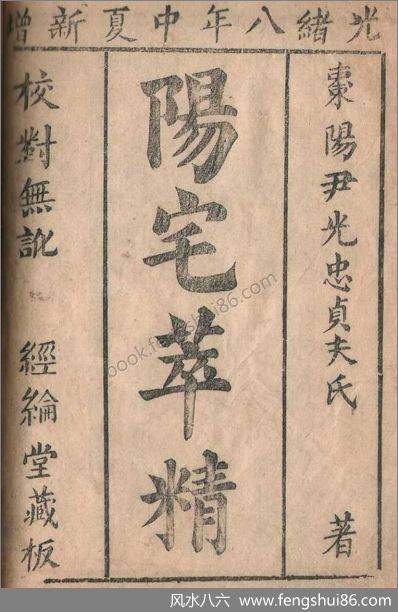 光緒八年中夏新增
棗陽尹光忠貞夫氏 著
陽宅萃精
校對無訛 經綸堂藏板
book.fengshui86.com
风水八六 www.fengshui86.com